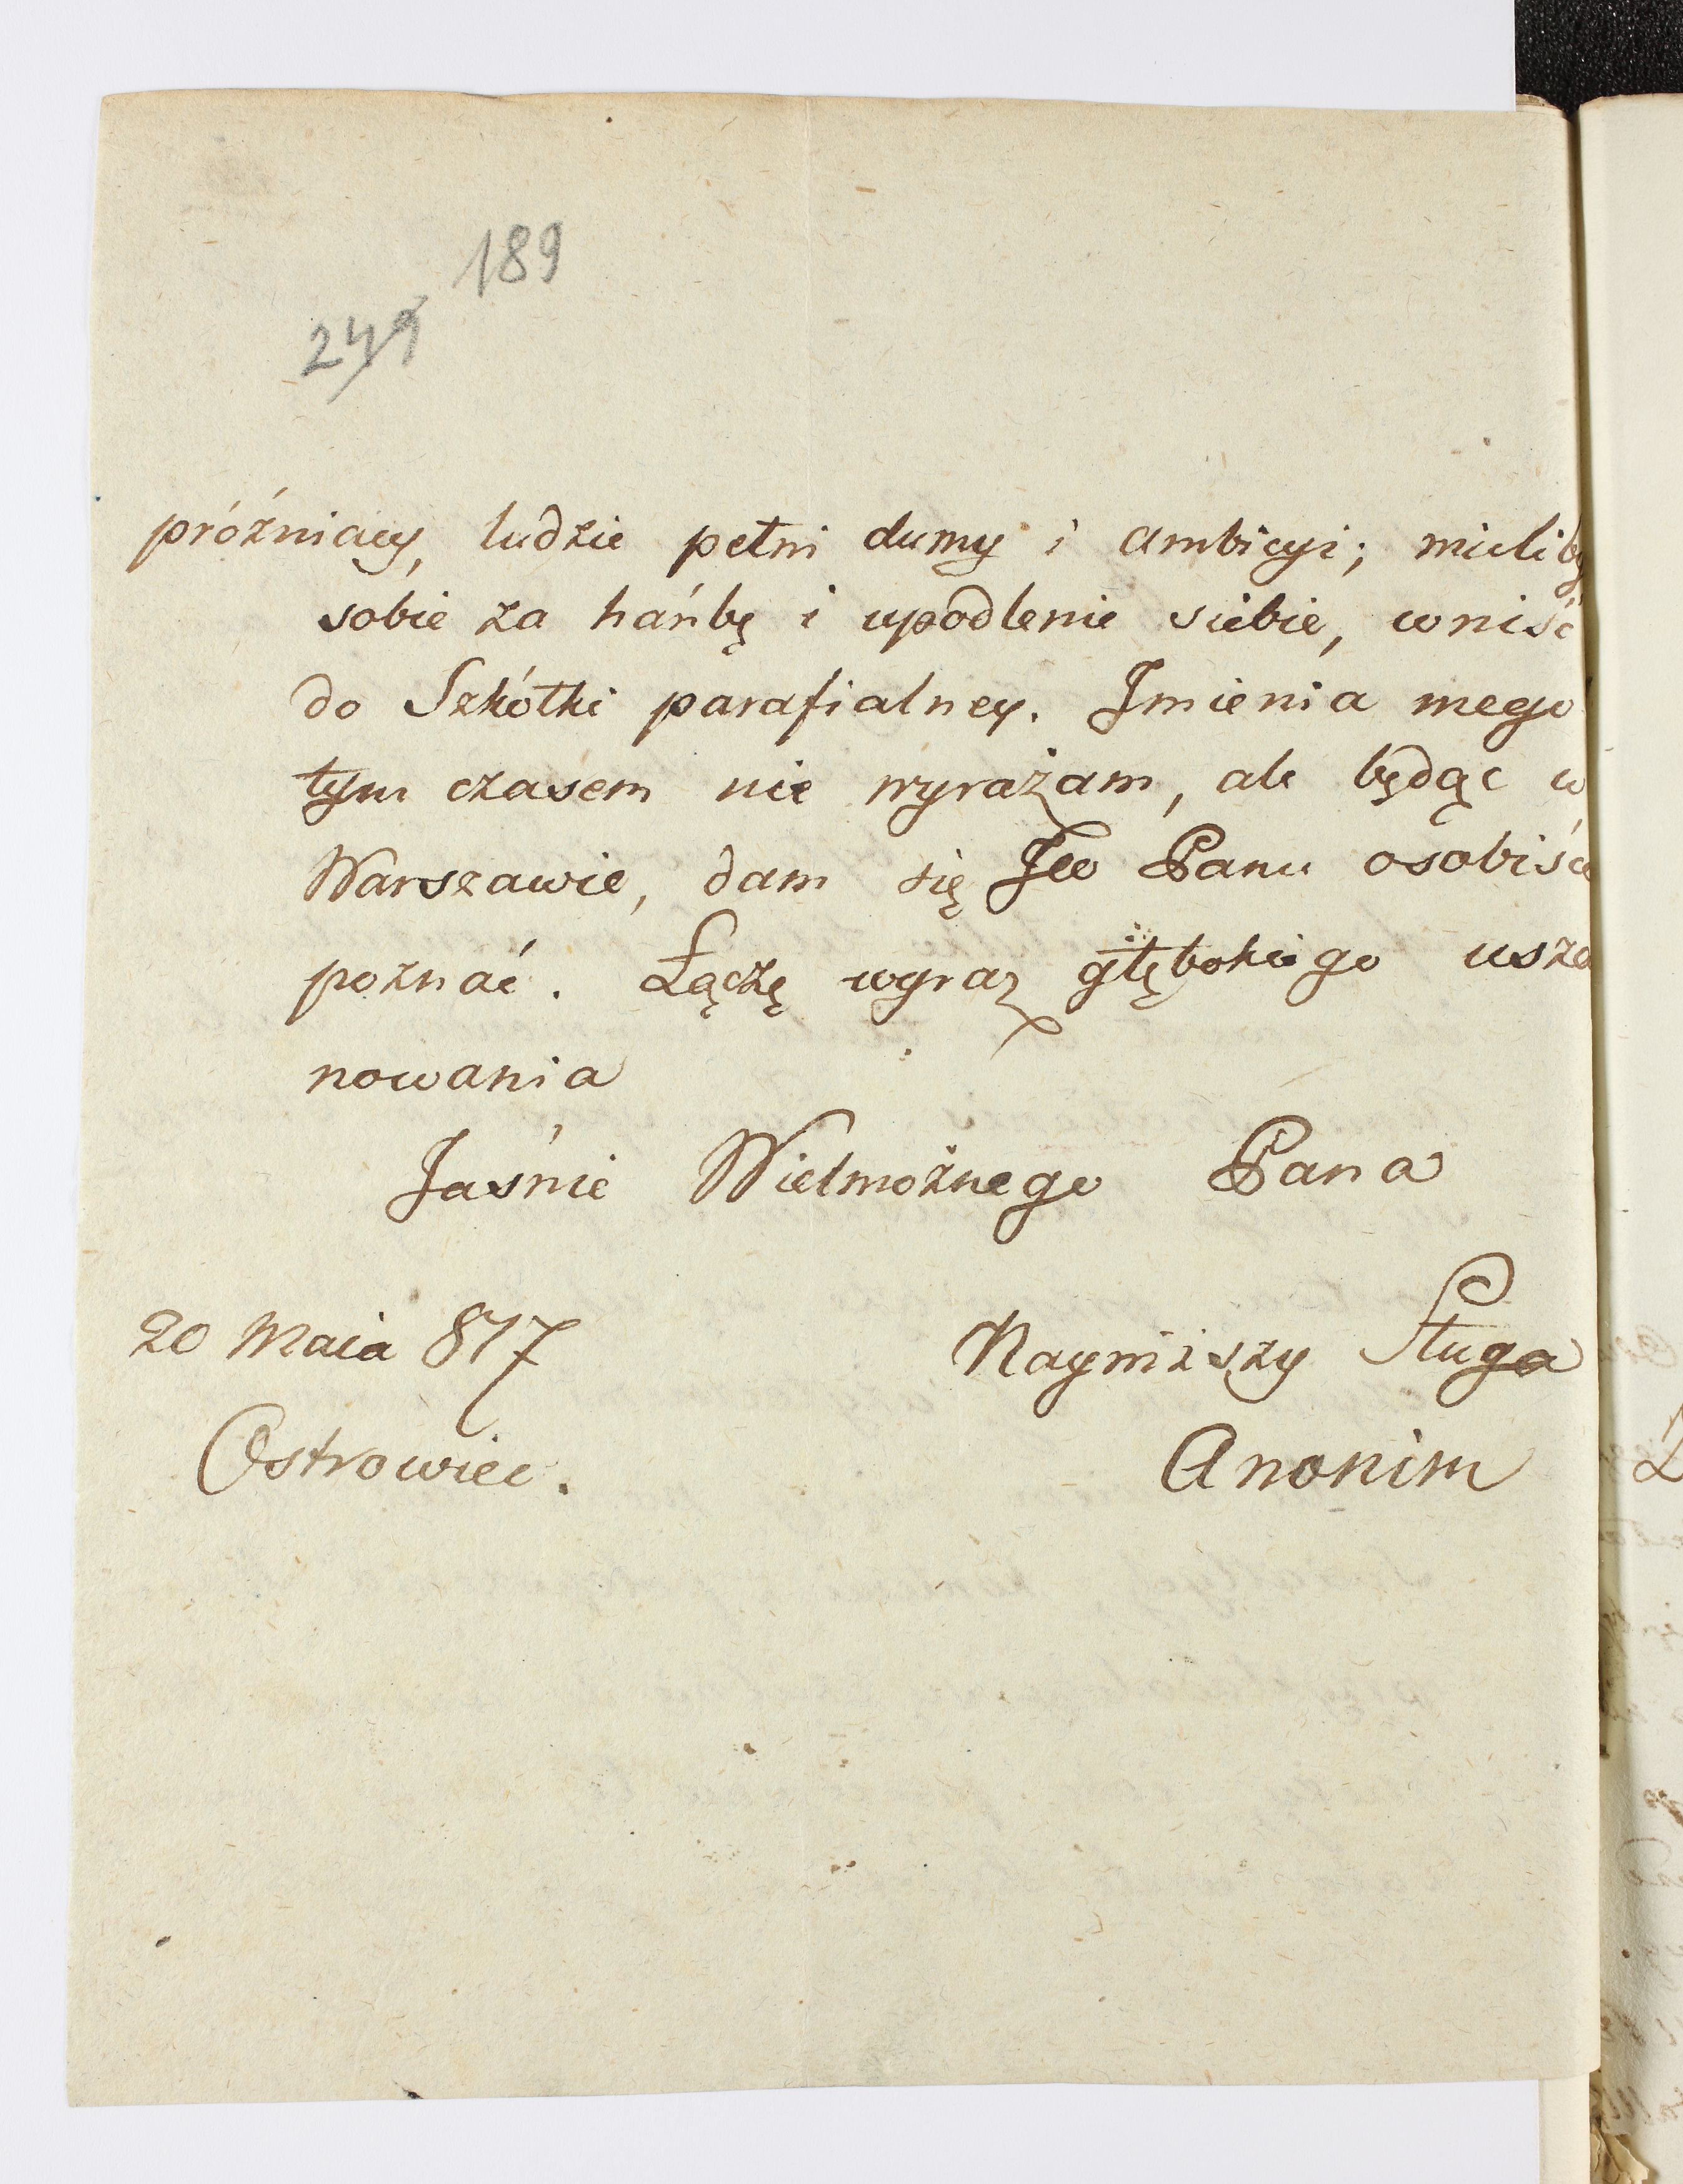 189
249
próżniacy, ludzie pełni dumy i ambicyi; mieliby
sobie za hańbę i upodlenie siebie, wniść
do Szkółki parafialney. Jmienia mego
tym czasem nie wyrażam, ale będąc w
Warszawie, dam się Jeo Panu osobiście
poznać. Łączę wyraz głębokiego usza
nowania
Jaśnie Wielmożnego Pana
20 Maia 817
Nayniższy Sługa
Ostrowiec.
Anonim